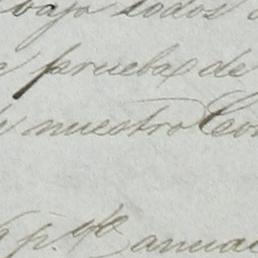 bajo todos
prueba de
nuestro Con
p.% anua